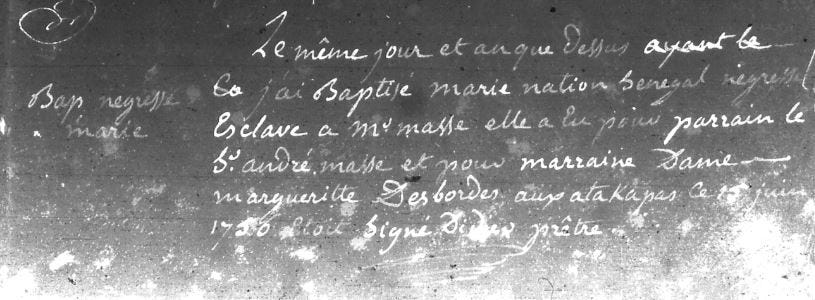 Le même jour et an que dessus ayant le
Bap negresse
marie
j'ai Baptisé marie nation Senegal negresse
Esclave a Mr masse elle a Eu pour parrain le
Sr. andré masse et pour marraine Dame
margueritte Desbordes aux atakapas le juin
Etoit Signé prêtre.